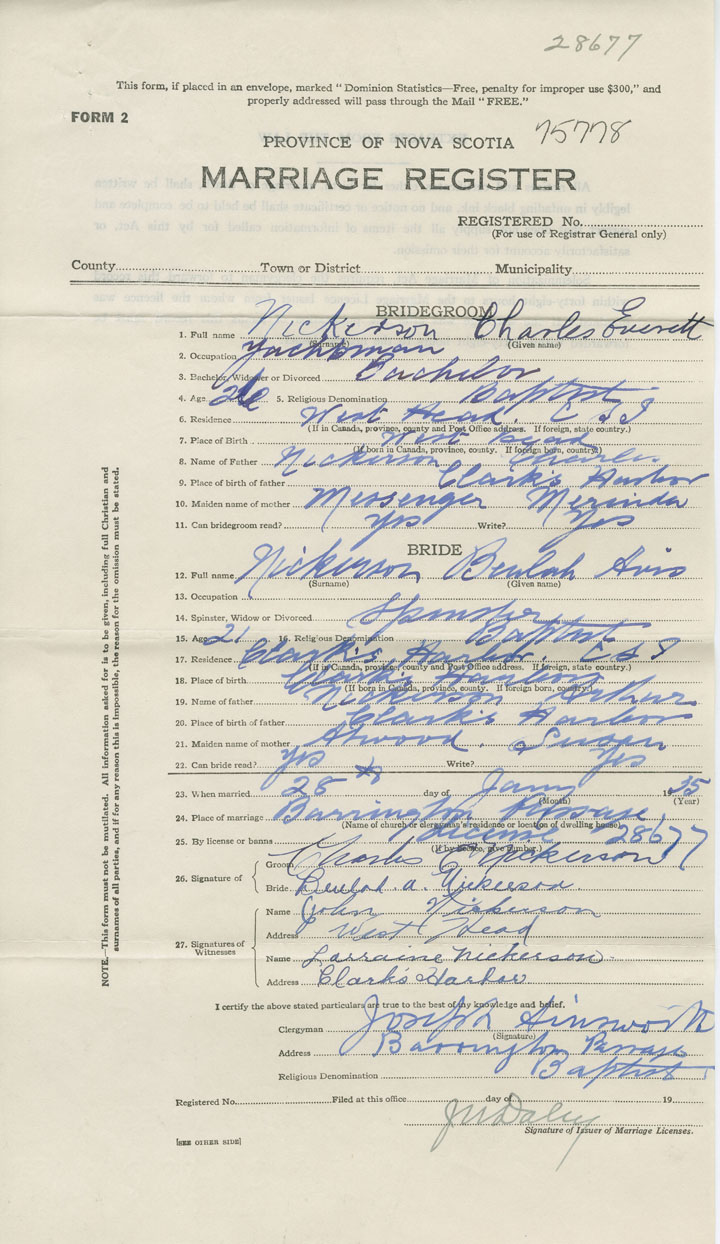 28677
This form, if placed in an envelope, marked "Dominion Statistics—Free, penalty for improper use $300," and
properly addressed will pass through the Mail "FREE."
FORM 2
75778
PROVINCE OF NOVA SCOTIA
MARRIAGE REGISTER
REGISTERED No.
(For use of Registrar General only)
County Town or District Municipality
BRIDEGROOM
1. Full name Nickerson Charles Everett
(Surname) (Given name)
2. Occupation Yachtsman
3. Bachelor, Widower or Divorced Bachelor
4. Age 5. Religious Denomination Baptist
6. Residence West Head, C S I
(If in Canada, province, county and Post Office address. If foreign, state country.)
7. Place of Birth West Head
(If born in Canada, province, county. If foreign born, country)
8. Name of Father Nickerson Charles
9. Place of birth of father Clark's Harbor
10. Maiden name of mother Messenger Merinda
11. Can bridegroom read? Yes Write? Yes
BRIDE
12. Full name Nickerson Beulah Avis
(Surname) (Given name)
13. Occupation
14. Spinster, Widow or Divorced Spinster
15. Age 21 16. Religious Denomination Baptist
17. Residence Clark's Harbor, C S I
(If in Canada, province, county and Post Office address. If foreign, state country.)
18. Place of birth Clark's Harbor
(If born in Canada, province, county. If foreign born, country.)
19. Name of father Nickerson Arthur
20. Place of birth of father Clark's Harbor
21. Maiden name of mother Atwood, Susan
22. Can bride read? Yes Write? Yes
23. When married 28 day of Jany 1935
(Month) (Year)
24. Place of marriage Barrington Passage,
(Name of church or clergyman's residence or location of dwelling house)
25. By license or banns License 28677
(If by licence, give number.)
26. Signature of
Groom Charles E Nickerson
Bride Beulah. A. Nickerson.
27. Signatures of Witnesses
Name John Nickerson
Address West Head
Name Lorraine Nickerson
Address Clark's Harbor
I certify the above stated particulars are true to the best of my knowledge and belief.
Clergyman Joseph Ainsworth
(Signature)
Address Barrington Passage
Religious Denomination Baptist
Registered No. Filed at this office day of 19
J M Daley
Signature of Issuer of Marriage Licenses.
[SEE OTHER SIDE]
NOTE.—This form must not be mutilated. All information asked for is to be given, including full Christian and
surnames of all parties, and if for any reason this is impossible, the reason for the omission must be stated.